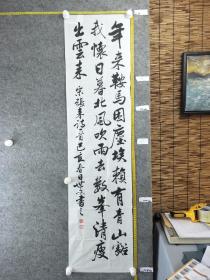 年来鞍馬困塵埃賴有青山豁
我懷日暮北風吹雨去數峯清瘦
出雲来 宋張耒詩 春日